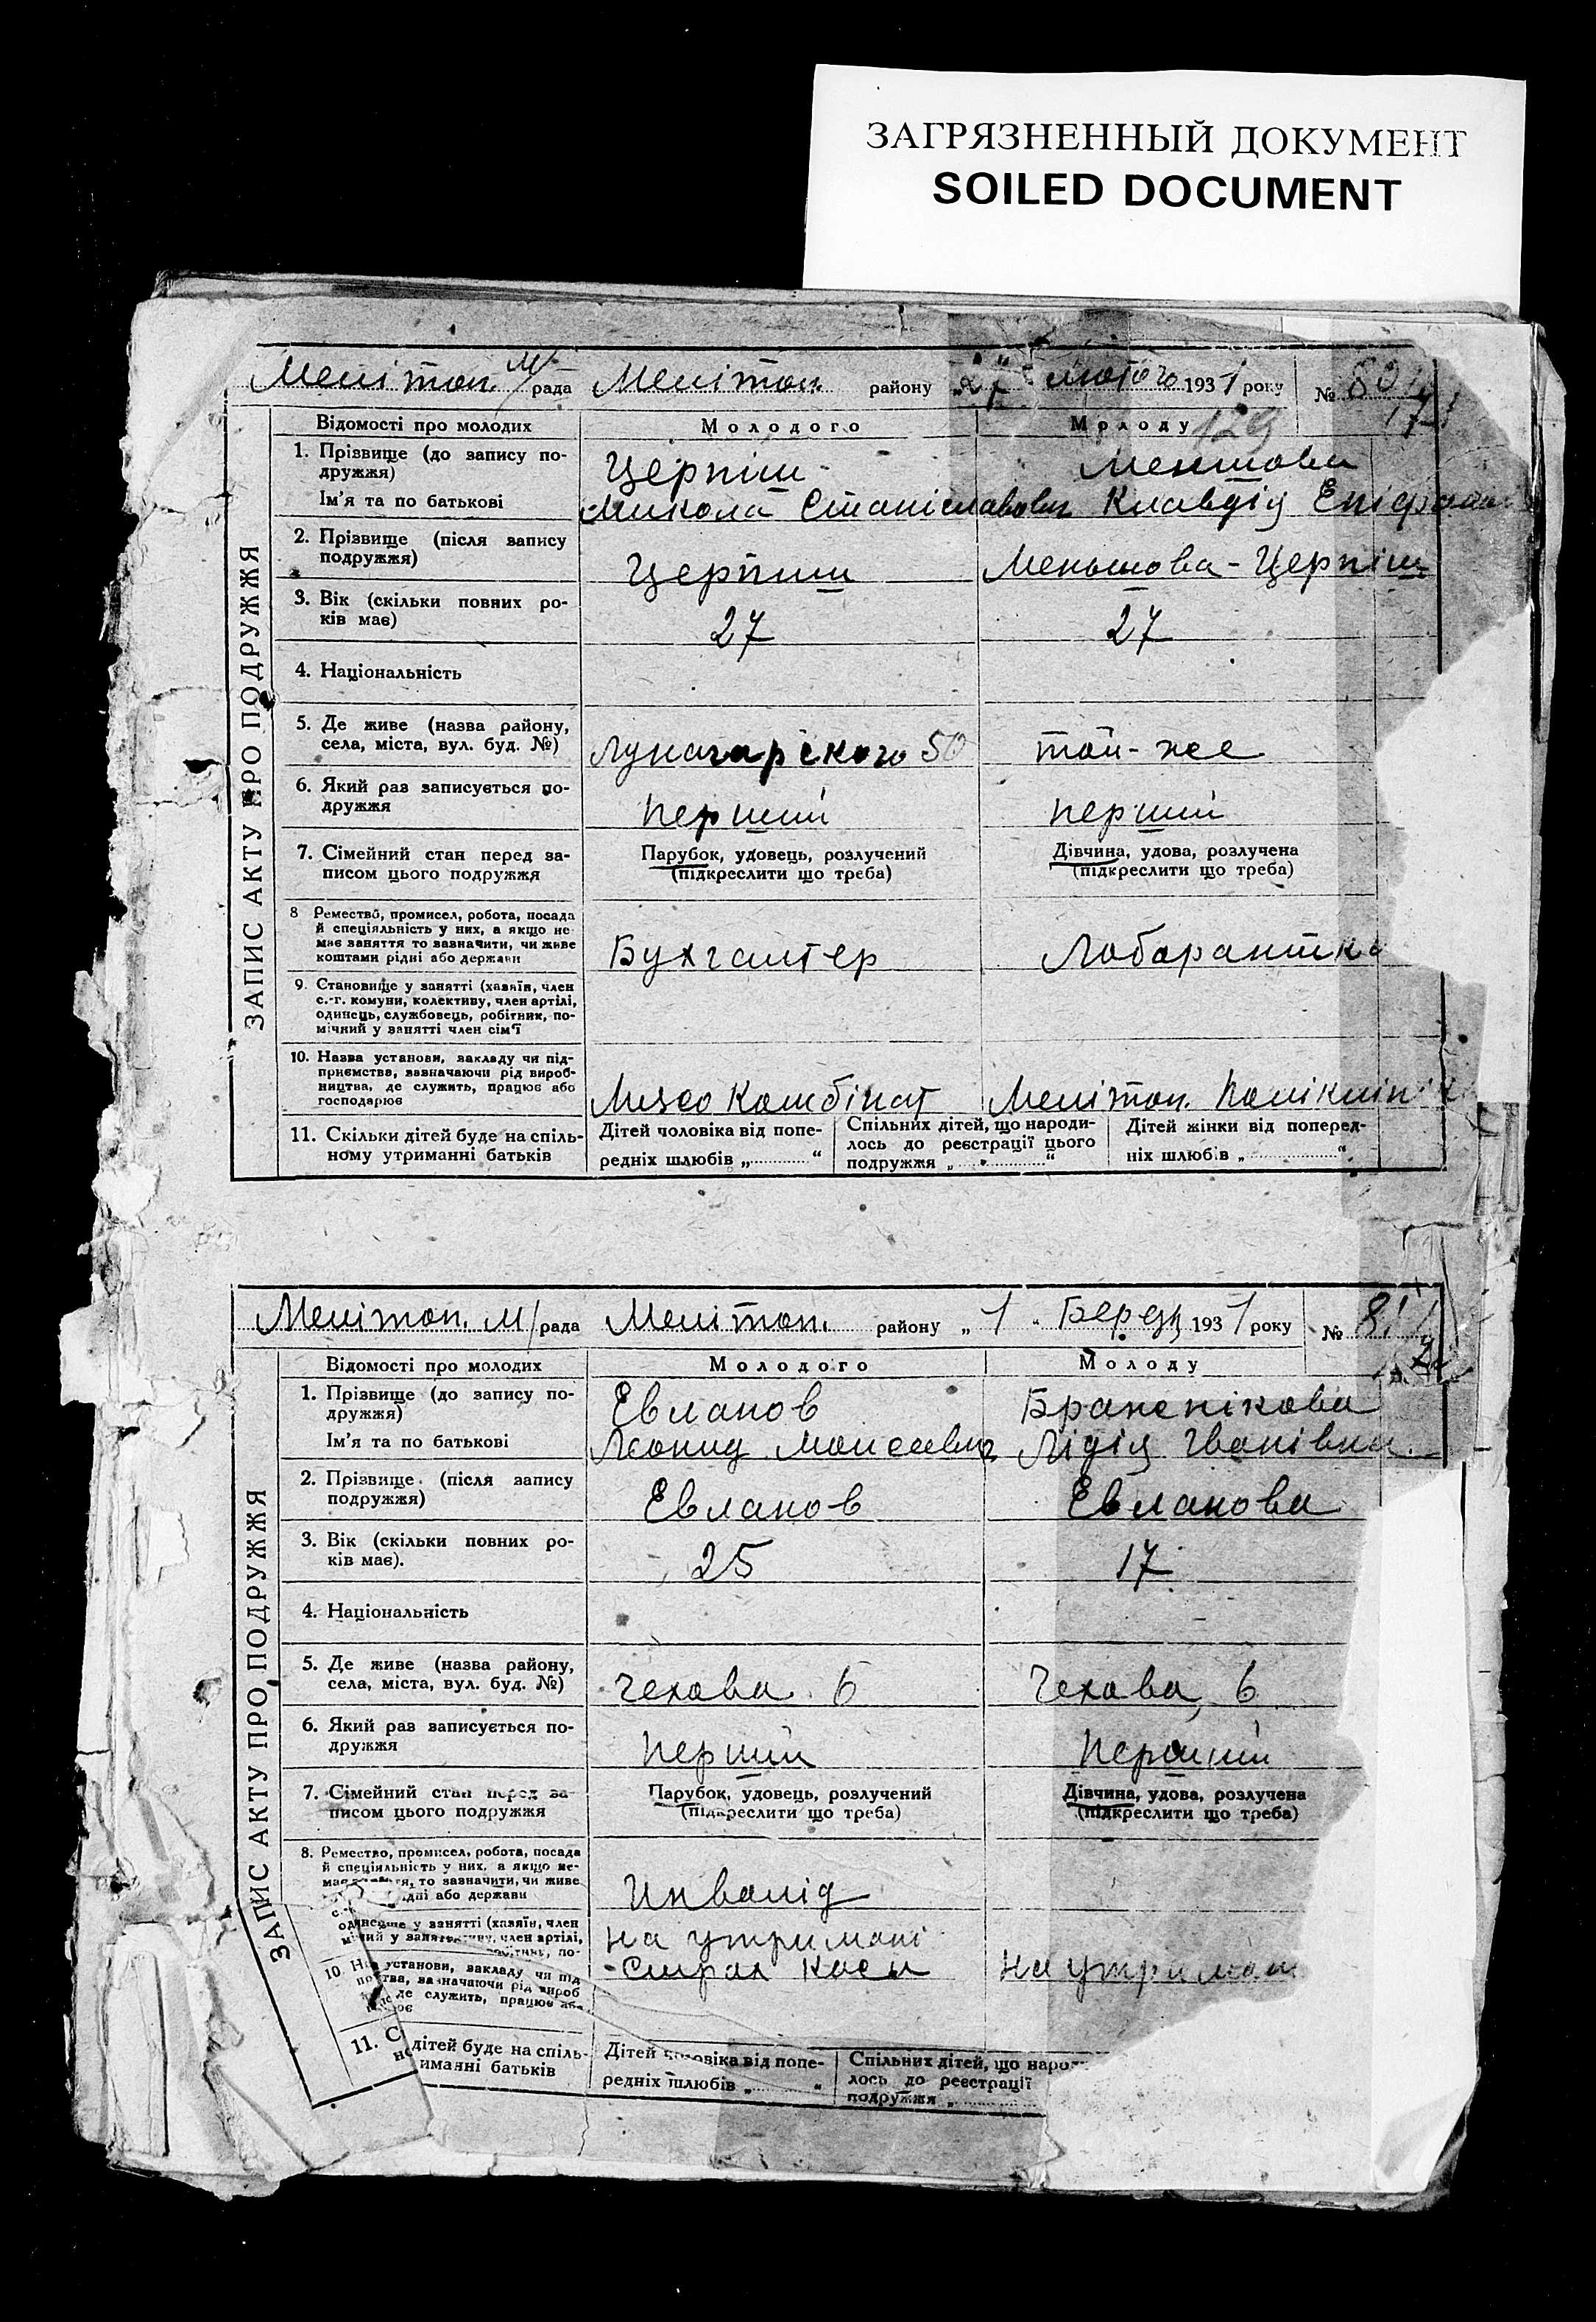 ЗАГРЯЗНЕННЫЙ ДОКУМЕНТ
SOILED DOCUMENT
Мелітоп. М/рада Мелітоп. району „27“ лютого 1931 року № 80
171
129
Відомості про молодих Молодого Молоду
ЗАПИС АКТУ ПРО ПОДРУЖЖЯ
1. Прізвище (до запису по-
дружжя)
Церпіш Меншова
Ім'я та по батькові Микола Станіславович Клавдія Епіфан
2. Прізвище (після запису
подружжя)
Церпиш Меньшова-Церпіш
3. Вік (скільки повних ро-
ків має)
27 27
4. Національність
5. Де живе (назва району,
села, міста, вул. буд. №)
Луначарського 50 той-же
6. Який раз записується по-
дружжя
перший перший
7. Сімейний стан перед за-
писом цього подружжя
Парубок, удовець, розлучений
(підкреслити що треба)
Дівчина, удова, розлучена
(підкреслити що треба)
8 Ремество, промисел, робота, посада
й спеціяльність у них, а якщо не
має заняття то зазначити, чи живе
коштами рідні або держави
Бухгалтер Лоборантка
9. Становище у занятті (хазяїн, член
с.-г. комуни, колективу, член артілі,
одинець, службовець, робітник, по-
мічний у занятті член сім'ї
10. Назва установи, закладу чи під-
приємства, зазначаючи рід вироб-
ництва, де служить, працює або
господарює
Комбінат Мелітоп. Поліклінік
11. Скільки дітей буде на спіль-
ному утриманні батьків
Дітей чоловіка від попе-
редніх шлюбів „ “
Спільних дітей, що народи-
лось до реєстрації цього
подружжя „ “
Дітей жінки від поперед-
ніх шлюбів „ “
Мелітоп. М/рада Мелітоп. району „1“ Березня 1931 року № 81
Відомості про молодих Молодого Молоду
ЗАПИС АКТУ ПРО ПОДРУЖЖЯ
1. Прізвище (до запису по-
дружжя)
Евланов Бражнікова
Ім'я та по батькові Леонид Моисеевич Лідія Іванівна.
2. Прізвище (після запису
подружжя)
Евланов Евланова
3. Вік (скільки повних ро-
ків має).
25 17
4. Національність
5. Де живе (назва району,
села, міста, вул. буд. №)
Чехова 6 Чехова, 6
6. Який раз записується по-
дружжя
перший перший
7. Сімейний стан перед за-
писом цього подружжя
Парубок, удовець, розлучений
(підкреслити що треба)
Дівчина, удова, розлучена
(підкреслити що треба)
8. Ремество, промисел, робота, посада
й спеціяльність у них, а якщо не-
то зазначити, чи живе
або держави
Инвалід
у занятті (хазяїн, член
член артілі,
по-
на утримані
10. установи, закладу чи під
зазначаючи рід вироб
де служить, працює
Страх касы На утриман
11. С
дітей буде на спіль-
иманні батьків
Дітей чоловіка від попе-
редніх шлюбів „ “
Спільних дітей, що народ
лось до реєстрації
подружжя „